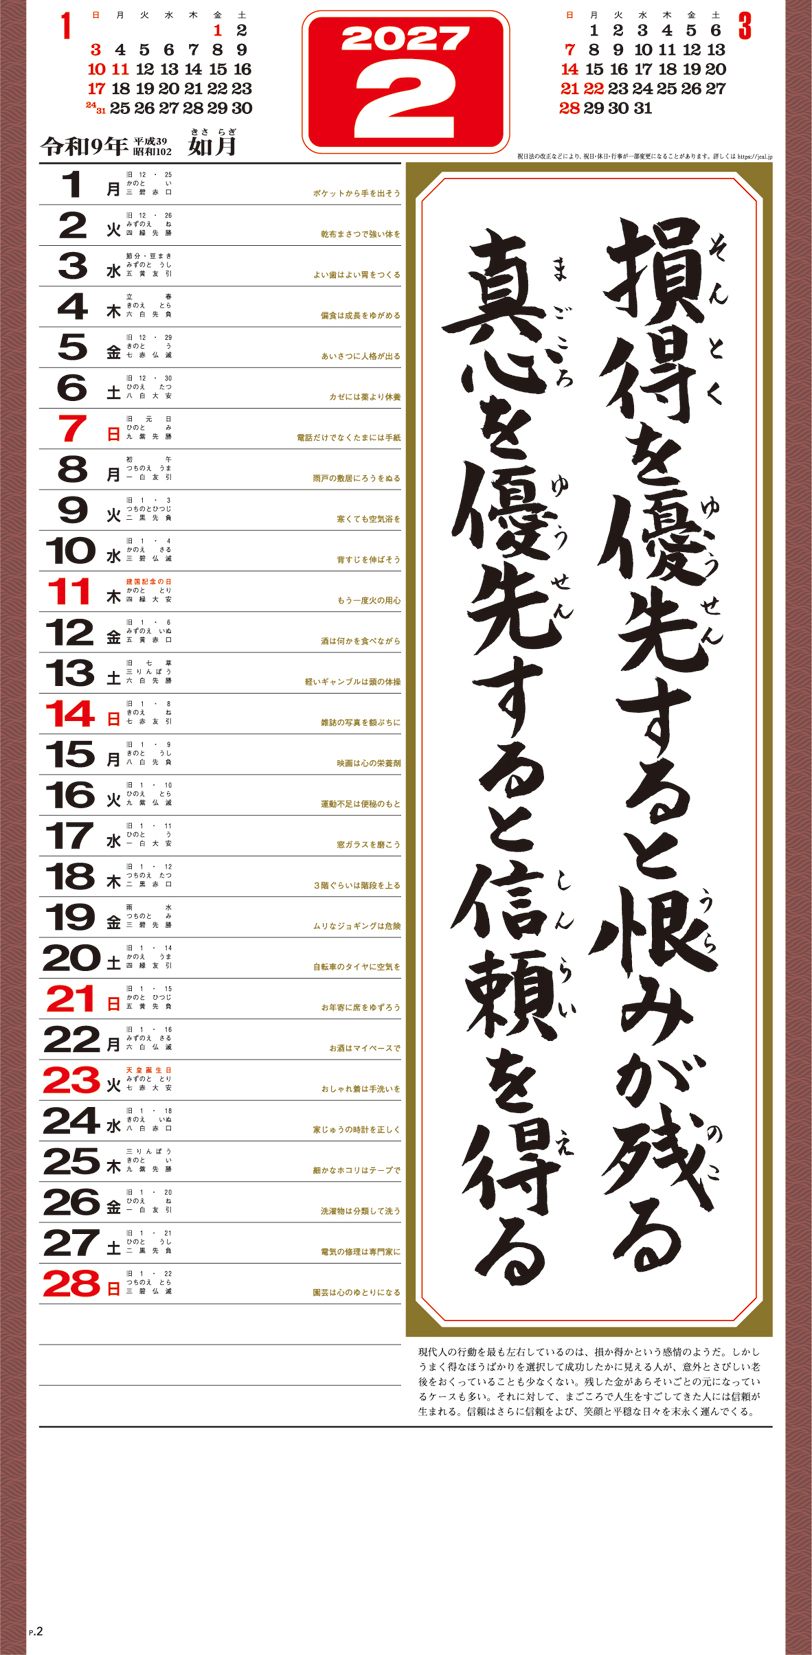 1
日 月 火 水 木 金 土
1 2
3 4 5 6 7 8 9
10 11 12 13 14 15 16
17 18 19 20 21 22 23
24/31 25 26 27 28 29 30
2027
2
3
日 月 火 水 木 金 土
1 2 3 4 5 6
7 8 9 10 11 12 13
14 15 16 17 18 19 20
21 22 23 24 25 26 27
28 29 30 31
令和9年 平成39 昭和102 如月 きさらぎ
祝日法の改正などにより、祝日・休日・行事が一部変更になることがあります。詳しくは https://jcal.jp
1 月 旧12・25 かのと い 三碧赤口 ポケットから手を出そう
2 火 旧12・26 みずのえ ね 四緑先勝 乾布まさつで強い体を
3 水 節分・豆まき みずのと うし 五黄友引 よい歯はよい胃をつくる
4 木 立春 きのえ とら 六白先負 偏食は成長をゆがめる
5 金 旧12・29 きのと う 七赤仏滅 あいさつに人格が出る
6 土 旧12・30 ひのえ たつ 八白大安 カゼには薬より休養
7 日 旧元日 ひのと み 九紫先勝 電話だけでなくたまには手紙
8 月 初午 つちのえ うま 一白友引 雨戸の敷居にろうをぬる
9 火 旧1・3 つちのとひつじ 二黒先負 寒くても空気浴を
10 水 旧1・4 かのえ さる 三碧仏滅 背すじを伸ばそう
11 木 建国記念の日 かのと とり 四緑大安 もう一度火の用心
12 金 旧1・6 みずのえ いぬ 五黄赤口 酒は何かを食べながら
13 土 旧七草 三りんぼう 六白先勝 軽いギャンブルは頭の体操
14 日 旧1・8 きのえ ね 七赤友引 雑誌の写真を額ぶちに
15 月 旧1・9 きのと うし 八白先負 映画は心の栄養剤
16 火 旧1・10 ひのえ とら 九紫仏滅 運動不足は便秘のもと
17 水 旧1・11 ひのと う 一白大安 窓ガラスを磨こう
18 木 旧1・12 つちのえ たつ 二黒赤口 3階ぐらいは階段を上る
19 金 雨水 つちのと み 三碧先勝 ムリなジョギングは危険
20 土 旧1・14 かのえ うま 四緑友引 自転車のタイヤに空気を
21 日 旧1・15 かのと ひつじ 五黄先負 お年寄に席をゆずろう
22 月 旧1・16 みずのえ さる 六白仏滅 お酒はマイペースで
23 火 天皇誕生日 みずのと とり 七赤大安 おしゃれ着は手洗いを
24 水 旧1・18 きのえ いぬ 八白赤口 家じゅうの時計を正しく
25 木 三りんぼう きのと い 九紫先勝 細かなホコリはテープで
26 金 旧1・20 ひのえ ね 一白友引 洗濯物は分類して洗う
27 土 旧1・21 ひのと うし 二黒先負 電気の修理は専門家に
28 日 旧1・22 つちのえ とら 三碧仏滅 園芸は心のゆとりになる
損得を優先すると恨みが残る
そんとく ゆうせん うら のこ
真心を優先すると信頼を得る
まごころ ゆうせん しんらい え
現代人の行動を最も左右しているのは、損か得かという感情のようだ。しかし
うまく得なほうばかりを選択して成功したかに見える人が、意外とさびしい老
後をおくっていることも少なくない。残した金があらそいごとの元になってい
るケースも多い。それに対して、まごころで人生をすごしてきた人には信頼が
生まれる。信頼はさらに信頼をよび、笑顔と平穏な日々を末永く運んでくる。
P.2